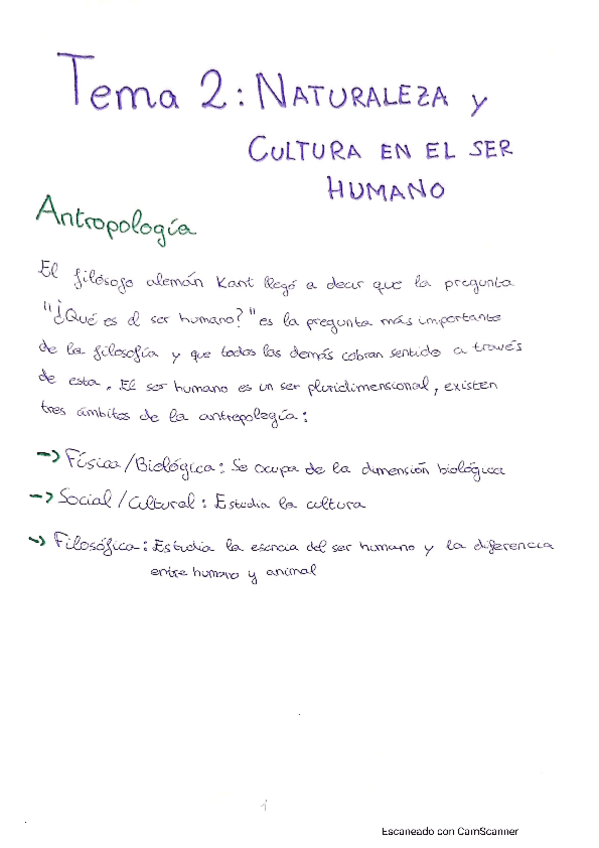 Tema 2: NATURALEZA y
CULTURA EN EL SER
HUMANO
Antropología
El filósofo alemán Kant llegó a decir que la pregunta
"¿Qué es el ser humano?" es la pregunta más importante
de la filosofía y que todas las demás cobran sentido a través
de esta. El ser humano es un ser pluridimensional, existen
tres ámbitos de la antropología:
-> Física/Biológica: Se ocupa de la dimensión biológica
-> Social/Cultural: Estudia la cultura
-> Filosófica: Estudia la esencia del ser humano y la diferencia
entre humano y animal
Escaneado con CamScanner